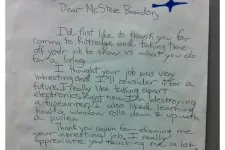 Dear Mr. Stee Brandon,
I'd first like to thank you for
coming to Kittredge and taking time
off your job to show us what you do
for a living.
I thought your job was very
intresting and I'll consider it for a
future. I really like taking apart
electronics. Right now I'm destroying
a typewriter. I also liked learning
how a window rolls down & up with
a pulley.
Thank you again for sharing me
your intresting job, I really
appreciate you teaching me a lot